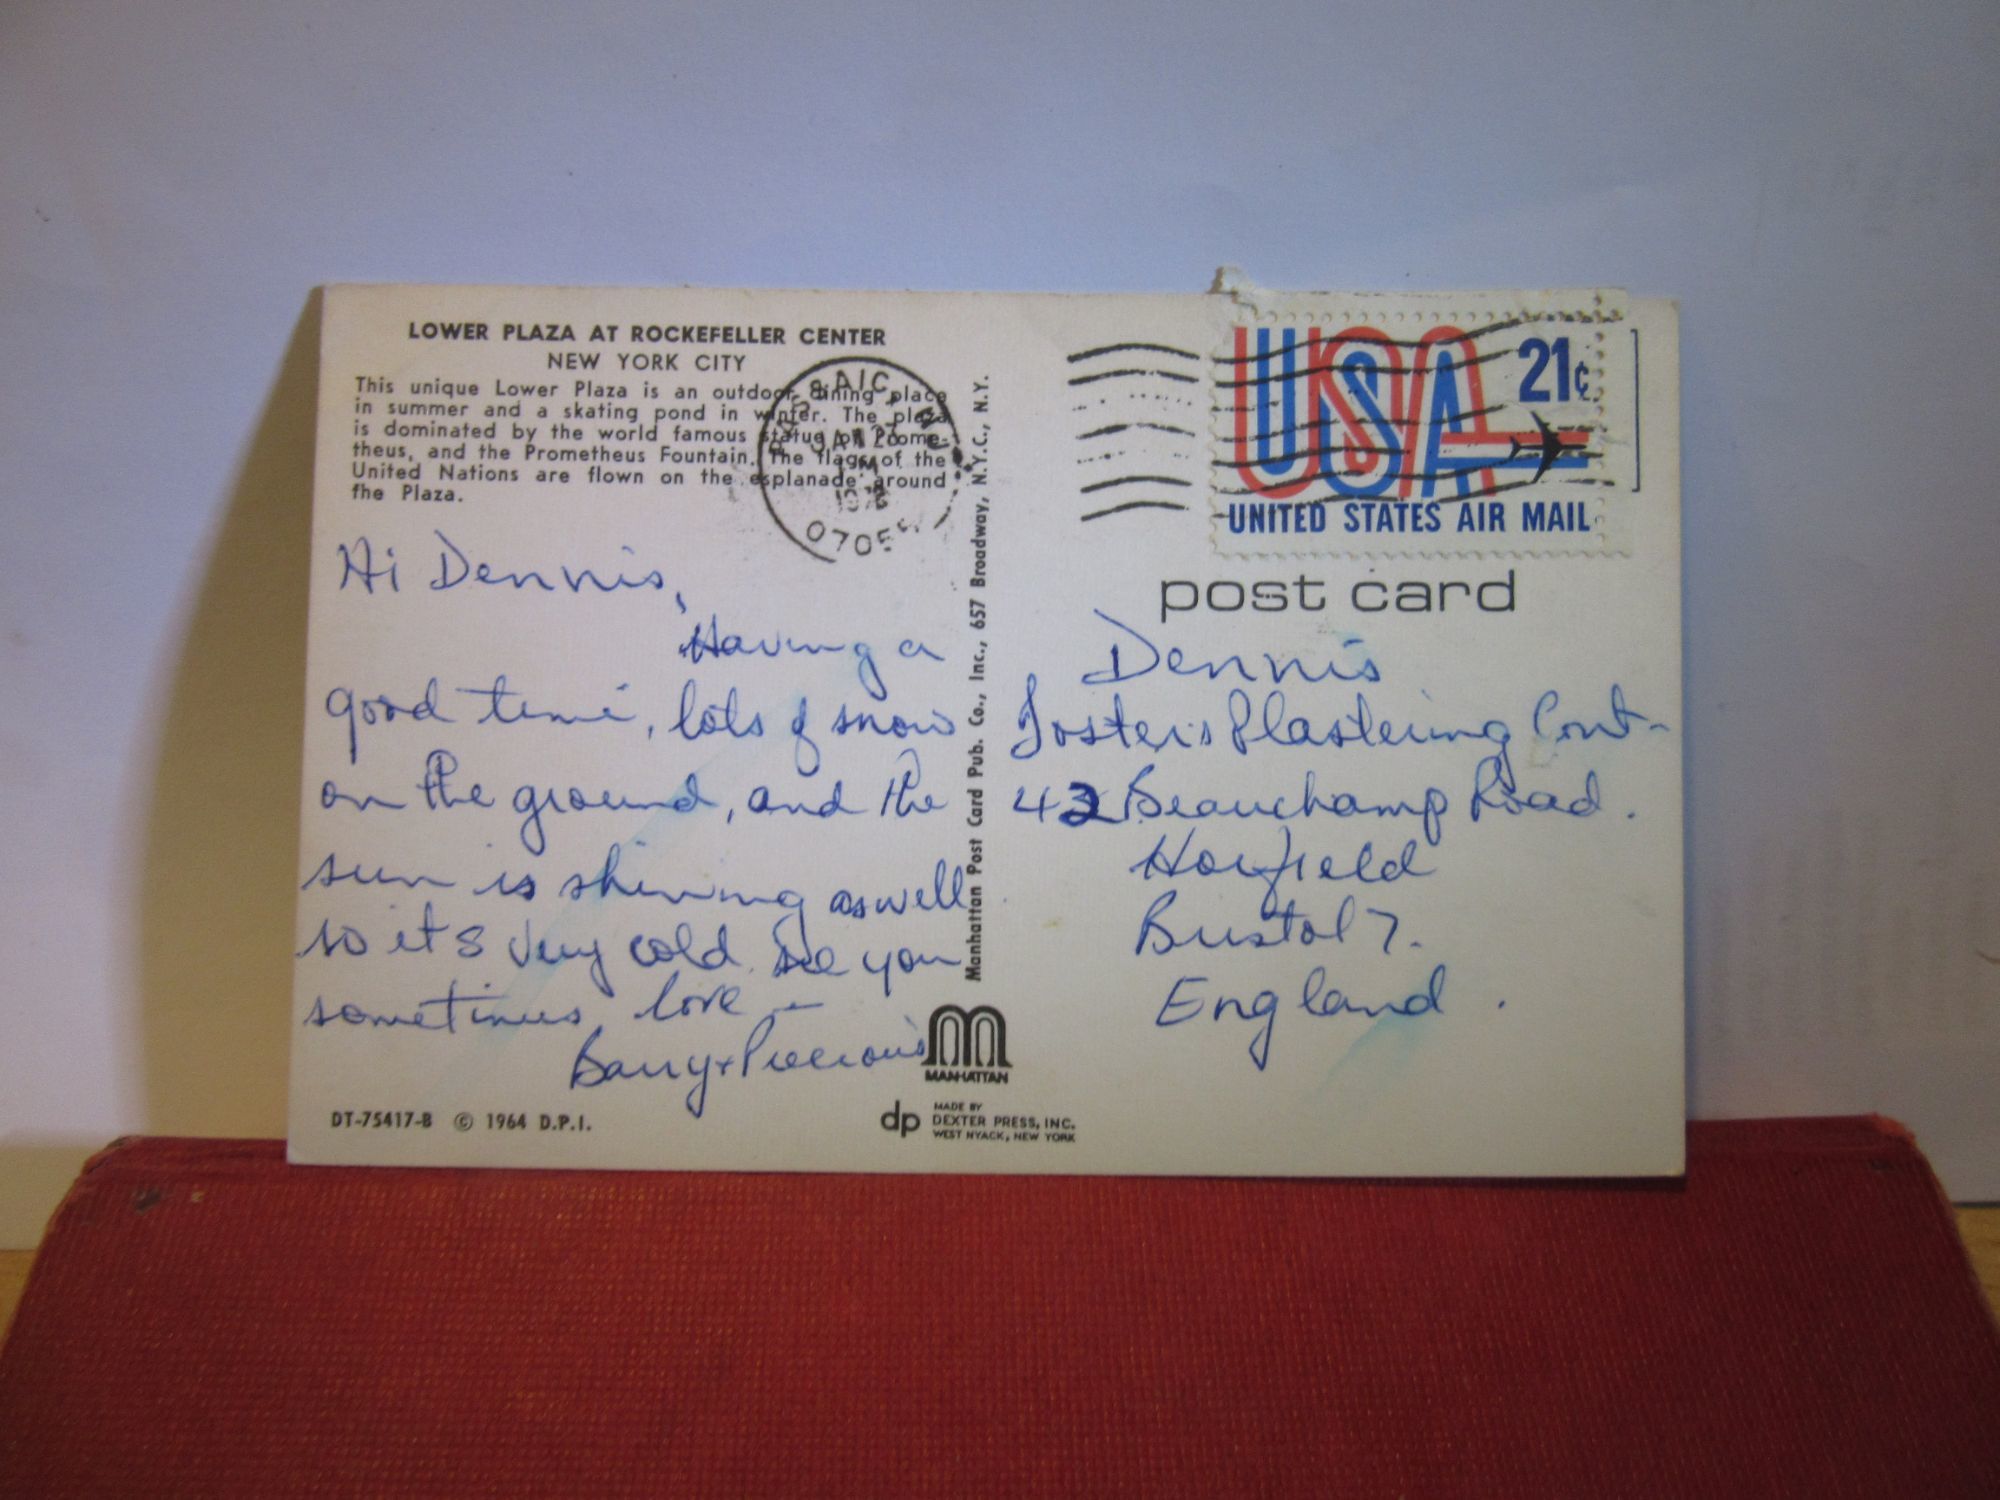 LOWER PLAZA AT ROCKEFELLER CENTER
NEW YORK CITY
This unique Lower Plaza is an outdoor dining place
in summer and a skating pond in winter. The plaza
is dominated by the world famous statue of Prome-
theus, and the Prometheus Fountain. The flags of the
United Nations are flown on the esplanade around
the Plaza.
Hi Dennis,
Having a
good time, lots of snow
on the ground, and the
sun is shining as well
so it's very cold. See you
sometimes love
Barry + 
DT-75417-B © 1964 D.P.I.
Manhattan Post Card Pub. Co., Inc., 657 Broadway, N.Y.C., N.Y.
MANHATTAN
dp MADE BY
DEXTER PRESS, INC.
WEST NYACK, NEW YORK
JAN
07055
USA 21¢
UNITED STATES AIR MAIL
post card
Dennis
Foster's Plastering Cont-
42 Beauchamp Road.
Horfield
Bristol 7.
England.